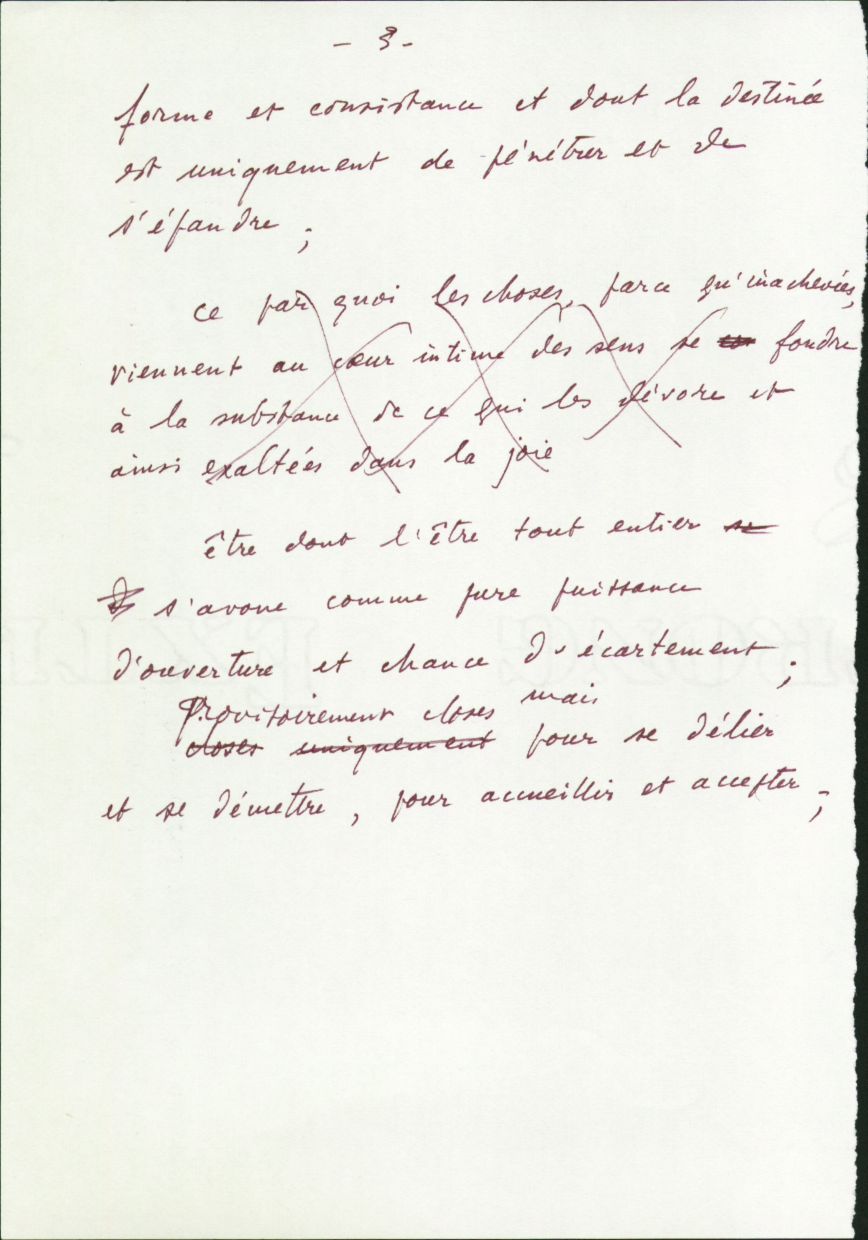 - 3 -
forme et consistance et dont la destinée
est uniquement de pénétrer et de
s'épandre ;
ce par quoi les choses, parce qu'inachevées,
viennent au cœur intime des sens se fondre
à la substance de ce qui les dévore et
ainsi exaltées dans la joie
être dont l'être tout entier se
s'avoue comme pure puissance
d'ouverture et chance d'écartement ;
Provisoirement closes mais
closes uniquement pour se délier
et se démettre, pour accueillir et accepter ;